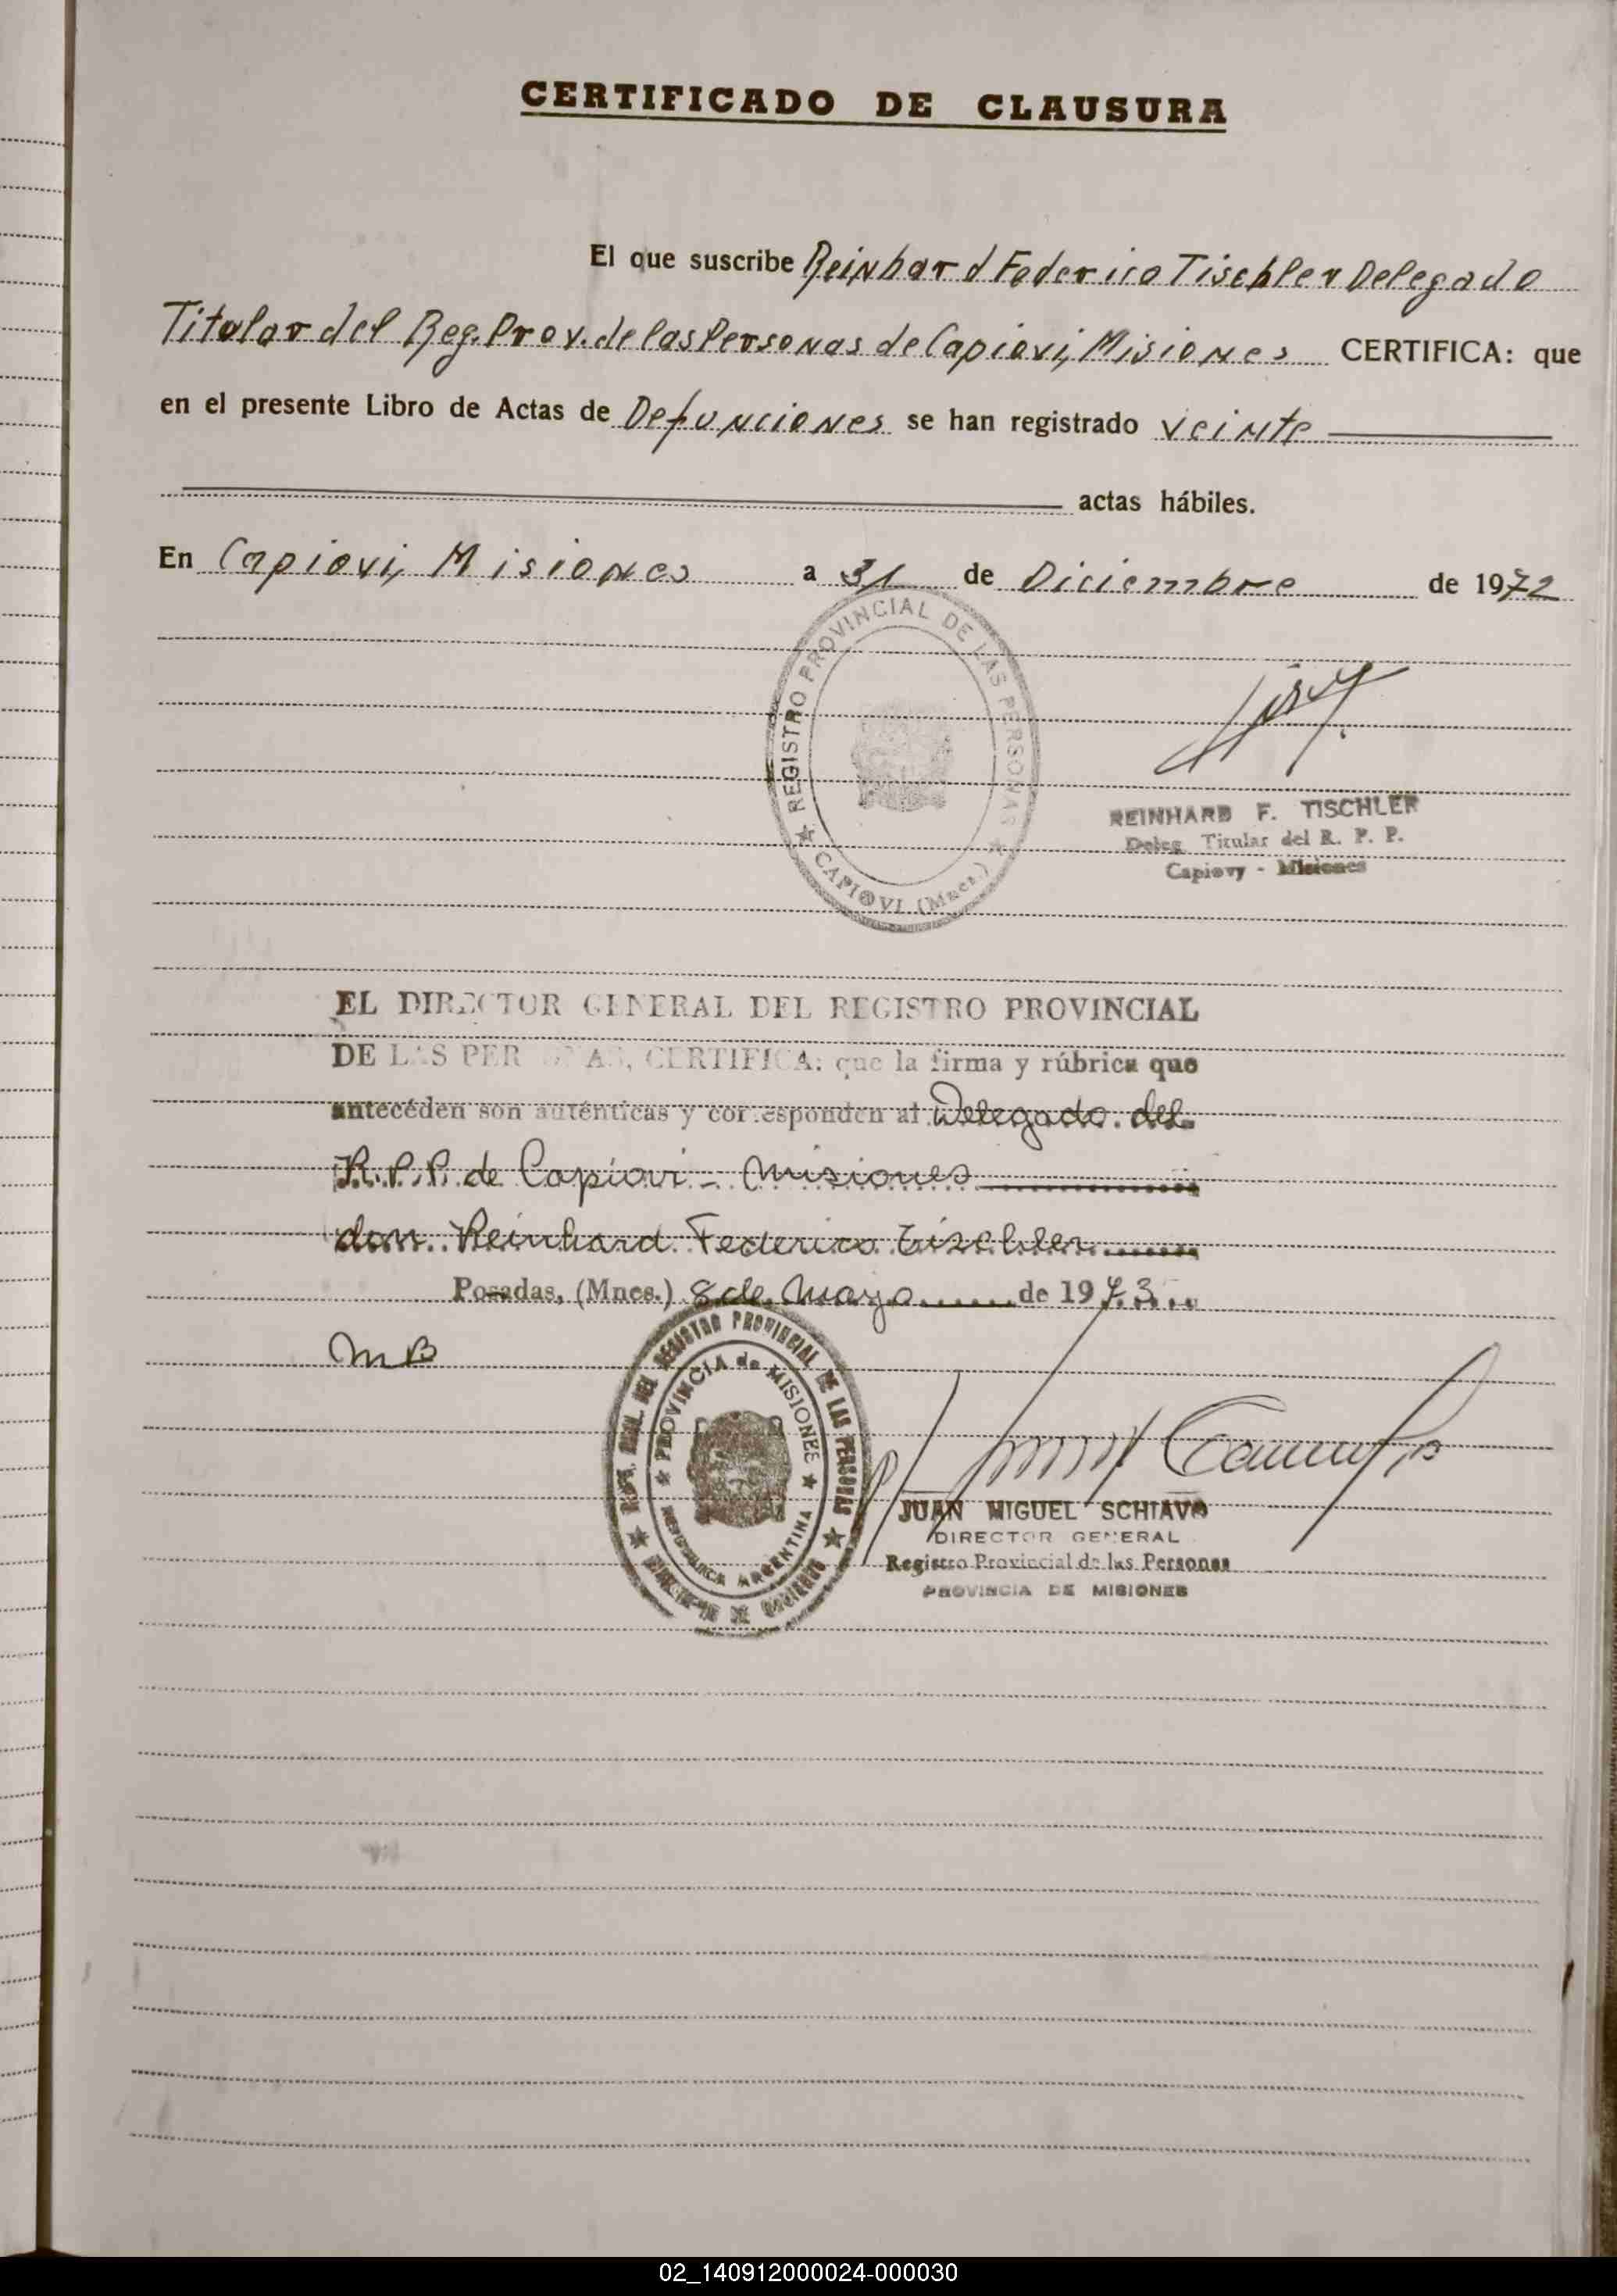 CERTIFICADO DE CLAUSURA
El que suscribe Reinhard Federico Tischler Delegado
Titular del Reg. Prov. de las Personas de Capiovi, Misiones CERTIFICA: que
en el presente Libro de Actas de Defunciones se han registrado veinte
actas hábiles.
En Capiovi, Misiones a 31 de Diciembre de 1972
REGISTRO PROVINCIAL DE LAS PERSONAS
CAPIOVI (Mnes.)
REINHARD F. TISCHLER
Deleg. Titular del R. P. P.
Capiovy - Misiones
EL DIRECTOR GENERAL DEL REGISTRO PROVINCIAL
DE LAS PERSONAS, CERTIFICA: que la firma y rúbrica que
anteceden son auténticas y corresponden al Delegado del
R.P.P. de Capiovi - Misiones
don Reinhard Federico Tischler
Posadas, (Mnes.) 8 de Mayo de 1973
MB
DEL REGISTRO PROVINCIAL DE LAS PERSONAS
PROVINCIA de MISIONES
REPUBLICA ARGENTINA
JUAN MIGUEL SCHIAVO
DIRECTOR GENERAL
Registro Provincial de las Personas
PROVINCIA DE MISIONES
02_140912000024-000030